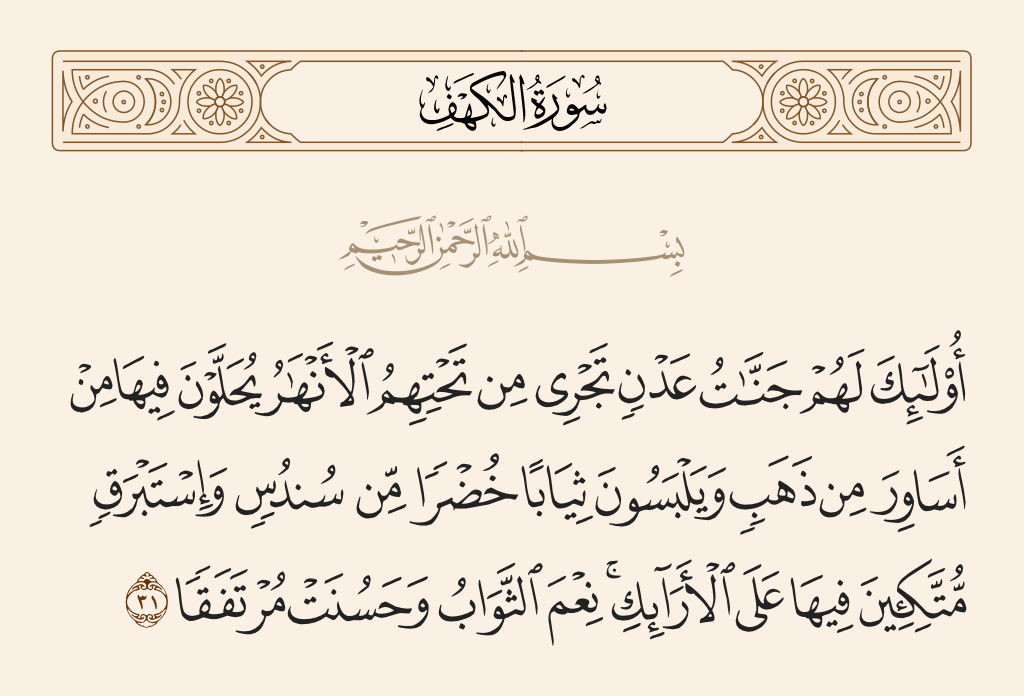 سُورَةُ الكَهْفِ
بِسْمِ ٱللَّهِ ٱلرَّحْمَٰنِ ٱلرَّحِيمِ
أُو۟لَـٰٓئِكَ لَهُمْ جَنَّـٰتُ عَدْنٍ تَجْرِى مِن تَحْتِهِمُ ٱلْأَنْهَـٰرُ يُحَلَّوْنَ فِيهَا مِنْ
أَسَاوِرَ مِن ذَهَبٍ وَيَلْبَسُونَ ثِيَابًا خُضْرًا مِّن سُندُسٍ وَإِسْتَبْرَقٍ
مُّتَّكِـِٔينَ فِيهَا عَلَى ٱلْأَرَآئِكِ ۚ نِعْمَ ٱلثَّوَابُ وَحَسُنَتْ مُرْتَفَقًا ٣١